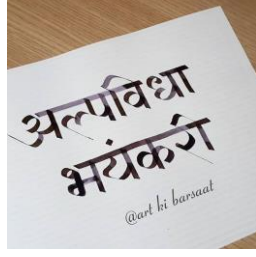 अल्पविधा
भयंकरी
@art ki barsaat